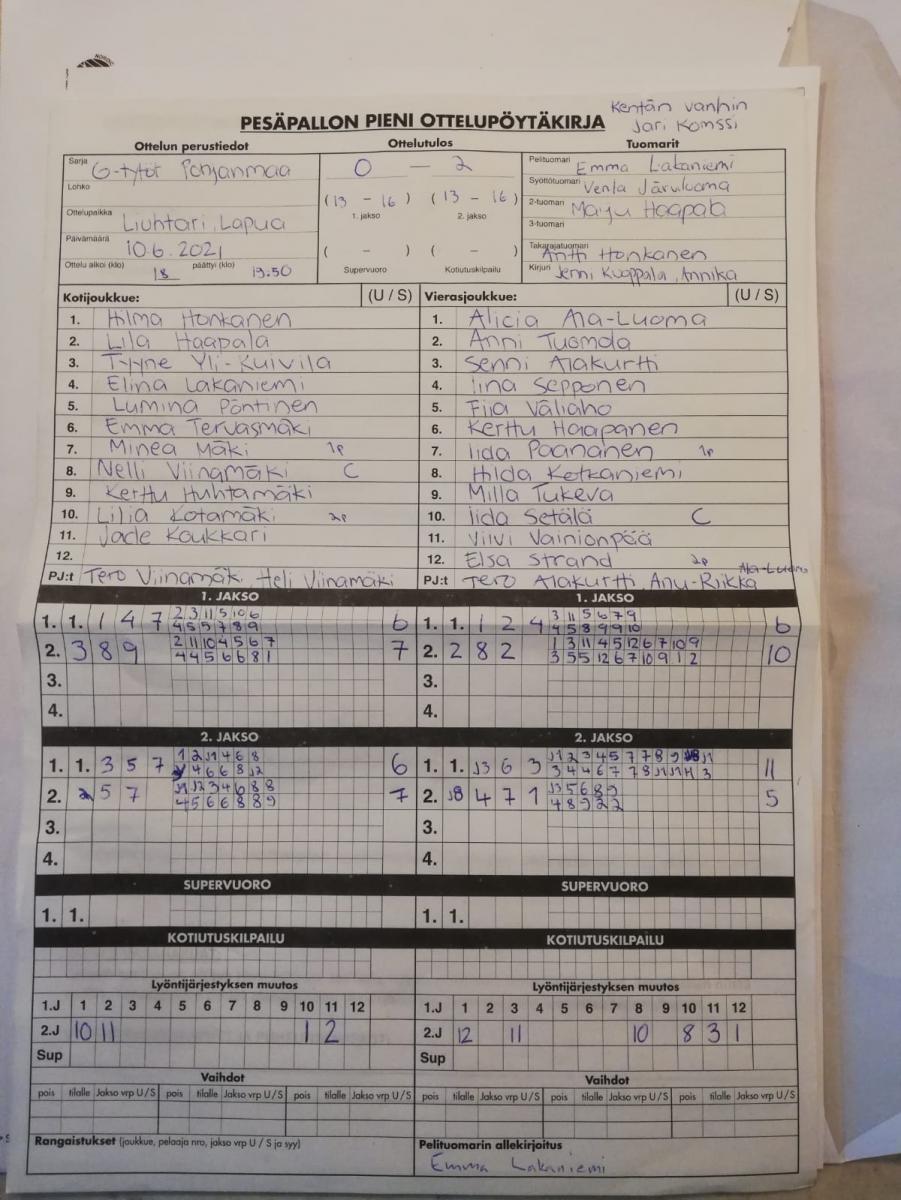 Kentän vanhin
Jari Komssi
PESÄPALLON PIENI OTTELUPÖYTÄKIRJA
Ottelun perustiedot Ottelutulos Tuomarit
Sarja G-tytöt Pohjanmaa
Lohko
Ottelupaikka Liuhtari, Lapua
Päivämäärä 10.6.2021
Ottelu alkoi (klo) 18 päättyi (klo) 19.50
0 – 2
(13 - 16) (13 - 16)
1. jakso 2. jakso
( - ) ( - )
Supervuoro Kotiutuskilpailu
Pelituomari Emma Lakaniemi
Syöttötuomari Venla Järviluoma
2-tuomari Maiju Haapala
3-tuomari
Takarajatuomari Antti Honkanen
Kirjuri Jenni Kuoppala, Annika
Kotijoukkue: (U / S)
1. Hilma Honkanen
2. Lila Haapala
3. Tyyne Yli-Kuivila
4. Elina Lakaniemi
5. Lumina Pöntinen
6. Emma Tervasmäki
7. Minea Mäki 1p
8. Nelli Viinamäki C
9. Kerttu Huhtamäki
10. Lilja Kotamäki 2p
11. Jade Koukkari
12.
PJ:t Tero Viinamäki, Heli Viinamäki
Vierasjoukkue: (U / S)
1. Alicia Ala-Luoma
2. Anni Tuomola
3. Senni Alakurtti
4. Iina Sepponen
5. Eija Väliaho
6. Kerttu Haapanen
7. Iida Paananen 1p
8. Hilda Kotkaniemi
9. Milla Tukeva
10. Iida Setälä C
11. Viivi Vainionpää
12. Elsa Strand 2p
PJ:t Tero Alakurtti, Anu-Riikka Ala-Luoma
1. JAKSO
1. 1. 1 4 7 2 3 11 5 10 6 6
4 5 5 7 8 9
2. 3 8 9 2 11 10 4 5 6 7 7
4 4 5 6 6 8 1
3.
4.
1. JAKSO
1. 1. 1 2 4 3 11 5 6 7 9 6
4 5 8 9 9 10
2. 2 8 2 1 3 11 4 5 12 6 7 10 9 10
3 5 5 12 6 7 10 9 1 2
3.
4.
2. JAKSO
1. 1. 3 5 7 1 2 11 4 6 8 6
4 6 6 8 12
2. 2 5 7 11 12 3 4 6 8 8 7
4 5 6 6 8 8 9
3.
4.
2. JAKSO
1. 1. 13 6 3 11 2 3 4 5 7 7 8 9 11 11
3 4 4 6 7 7 8 11 11 11 3
2. 18 4 7 1 13 5 6 8 9 5
4 8 9 2 2
3.
4.
SUPERVUORO
1. 1.
SUPERVUORO
1. 1.
KOTIUTUSKILPAILU
KOTIUTUSKILPAILU
Lyöntijärjestyksen muutos
1.J 1 2 3 4 5 6 7 8 9 10 11 12
2.J 10 11 1 2
Sup
Lyöntijärjestyksen muutos
1.J 1 2 3 4 5 6 7 8 9 10 11 12
2.J 12 11 10 8 3 1
Sup
Vaihdot
pois tilalle Jakso vrp U/S pois tilalle Jakso vrp U/S pois tilalle Jakso vrp U/S
Vaihdot
pois tilalle Jakso vrp U/S pois tilalle Jakso vrp U/S pois tilalle Jakso vrp U/S
Rangaistukset (joukkue, pelaaja nro, jakso vrp U / S ja syy)
Pelituomarin allekirjoitus
Emma Lakaniemi